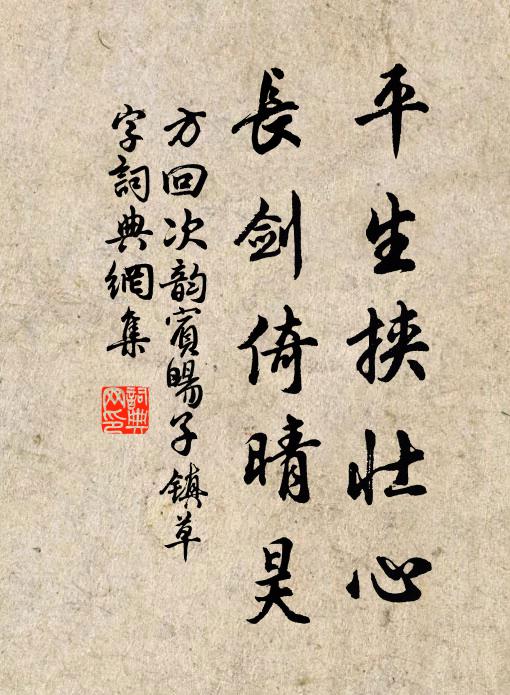 平生挾壯心
長劍倚晴昊
方回次韵賓暘子鎮草
字詞典網集
詞典网印